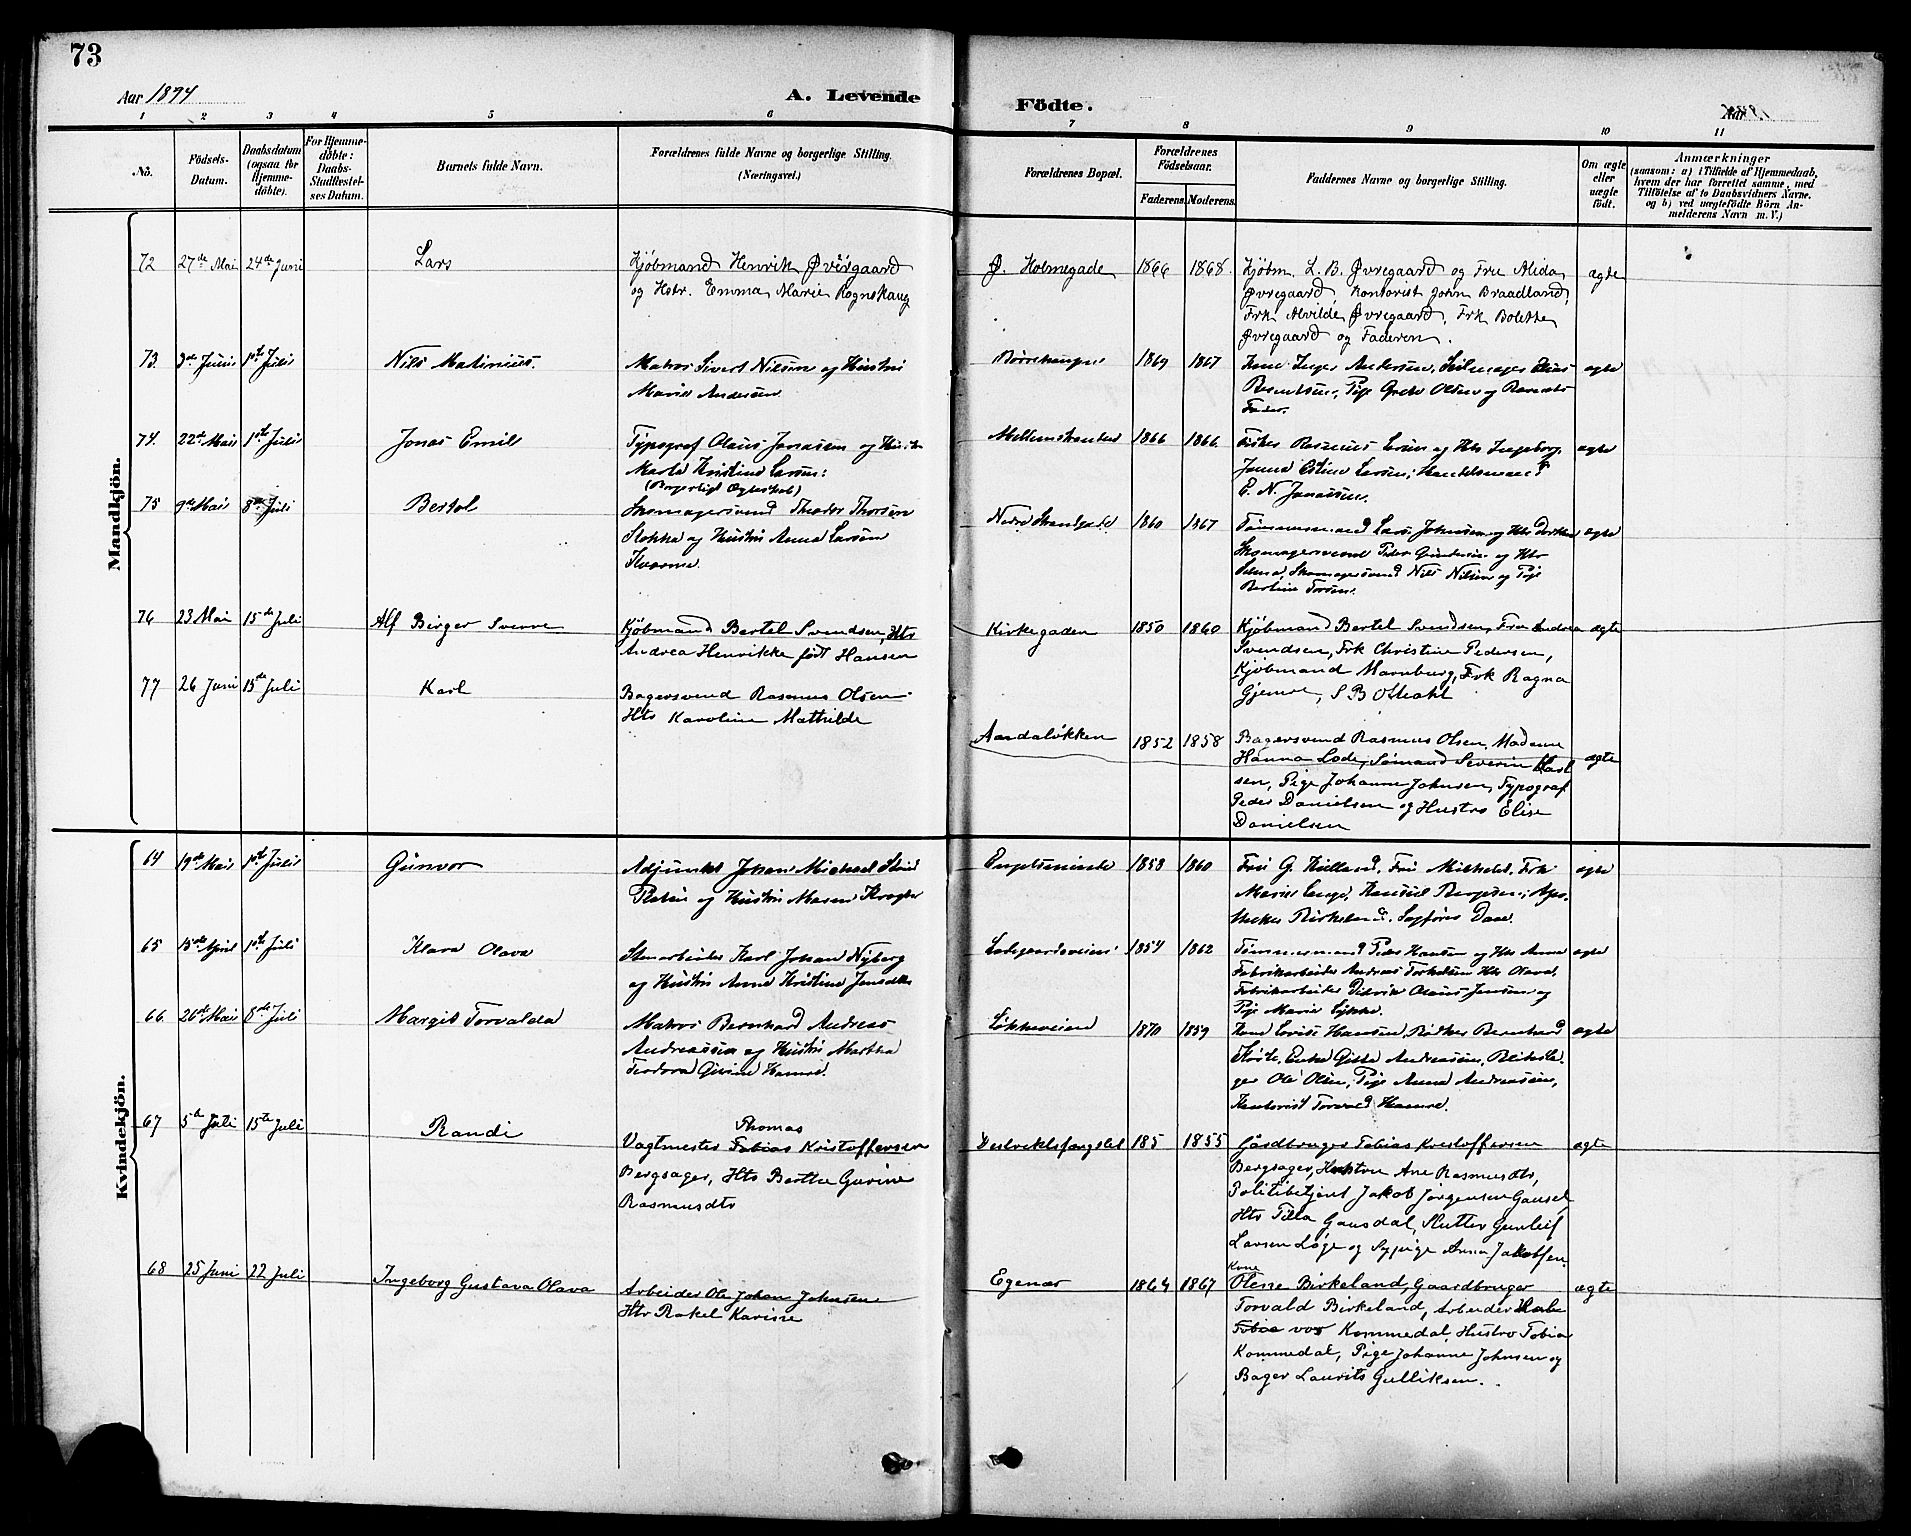 73
Aar 1894
A. Levende
Födte.
Aar
1
2
3
4
5
6
7
8
9
10
11
No.
Födsels-
Datum.
Daabsdatum
(ogsaa for
Hjemme-
döbte).
For Hjemme-
döbte:
Daabs-
Stadfæstel-
ses Datum.
Barnets fulde Navn.
Forældrenes fulde Navne og borgerlige Stilling.
(Næringsvei.)
Forældrenes Bopæl.
Forældrenes
Födselsaar.
Faderens.
Moderens.
Faddernes Navne og borgerlige Stilling.
Om ægte
eller
uægte
födt.
Anmærkninger
(saasom: a) i Tilfælde af Hjemmedaab,
hvem der har forrettet samme, med
Tilföielse af to Daabsvidners Navne.
og b) ved uægtefödte Börn An-
melderens Navn m. V.)
Mandkjön.
72
27de Mai
24de Juni
Lars
Kjøbmand Henrik Øvregaard
og Hstr. Emma Marie Rognskaug
Ø. Holmegade
1866
1868
Kjøbm. L. B. Øvregaard og Frue Alida
Øvregaard, Kontorist John Braadland,
Frk Alvilde Øvregaard, Frk Bolette
Øvregaard og Faderen.
ægte
73.
1ste Juli
Nils Matinius.
Matros Sivert Nilsen og Hustru
Marie Andersen
1869
1867
Kone Inger Andersen, Seilmager
Berentsen, Pige Grete Olsen og Barnets
Fader.
ægte
74.
22de Mai
1ste Juli
Jonas Emil
Typograf Olaus Jonassen og Hustru
Marta Kristine Larsen:
(Borgerligt Ægteskab)
1866
1866
Fisker Rasmus Larsen og Hts Ingeborg,
Janna Larsen, Handelsmand
E. N. Jonassen.
ægte
75
9de Mai
8de Juli
Bertol
Skomagersvend Theodor Thorsen
Stokka og Hustru Anna Larsen
Nedre Strandgade
1860
1867
Tømmermand Lars Johnsen og Hts Dorthea
Skomagersvend Peder og Hts
Selma, Skomagersvend Nils Nilsen og Pige
Bertine
ægte
76
23 Mai
15de Juli
Alf Birger Sverre
Kjøbmand Bertel Svendsen, Hts
Andrea Henrikke født Hansen
Kirkegaden
1850
1860
Kjøbmand Bertel Svendsen, Fru Andrea
Svendsen, Frk Christine Pedersen,
Kjøbmand Marnburg, Frk Ragna
Gjemre, S B
ægte
77
26 Juni
15de Juli
Karl
Bagersvend Rasmus Olsen
Hts Karoline Mathilde
Aandaløkken
1852
1858
Bagersvend Rasmus Olsen, Madame
Hanna Lode, Sømand Severin Karl
sen, Pige Johanne Johnsen, Typograf
Peder Danielsen og Hustro Elise
Danielsen
ægte
Kvindekjön.
64
19de Mai
1ste Juli
Gunvor
Adjunkt Johan Michael
og Hustru Maren
1858
1860
Fru G. Kielland, Fru Frk
Marie Lange, Konsul Bergesen, Apo-
theker Birkeland, Sagfører Daae
ægte
65
15de April
1ste Juli
Klara Olava
Stenarbeider Karl Johan Nyberg
og Hustru Anne Kristine Jonsdtr
Ladegaardsveien
1854
1862
Tømmermand Peder Hansen og Hts Anna
Fabrikarbeider Andreas Torkelsen Hts Olava,
Fabrikarbeider Didrik Olaus Jensen og
Pige Marie Lykke.
ægte
66
26de Mai
8de Juli
Margit Torvalda
Matros Bernhard Andreas
Andreassen og Hustru Martha
Teodora
Løkkeveien
1870
1859
Kone Lovise Hansen, Bødker Bernhard
Enke Gitta Andreassen, Blikslа-
ger Ole Olsen, Pige Anna Andreassen,
Kontorist Torvald
ægte
67
5te Juli
15te Juli
Randi
Thomas
Vagtmester Tobias Kristoffersen
Bergsager, Hts Berthe Gurine
Rasmusdtr
Destriktsfængslet
185
1855
Gårdbruger Tobias Kristoffersen
Bergsager, Hustru Ane Rasmusdtr,
Politibetjent Jakob Jørgensen Gausel,
Hts Tilla Gausdal, Slutter Gunleif
Larsen Løge og Sypige Anna Jakobsen
ægte
68
25 Juni
22 Juli
Ingeborg Gustava Olava
Arbeider Ole Johan Johnsen
Htr Rakel Karine
Egenær
1864
1867
Kone
Olene Birkeland, Gaardbruger
Torvald Birkeland, Arbeider
Kommedal, Hustro Tobia
Kommedal, Pige Johanne Johnsen og
Bager Laurits Gulliksen.
ægte